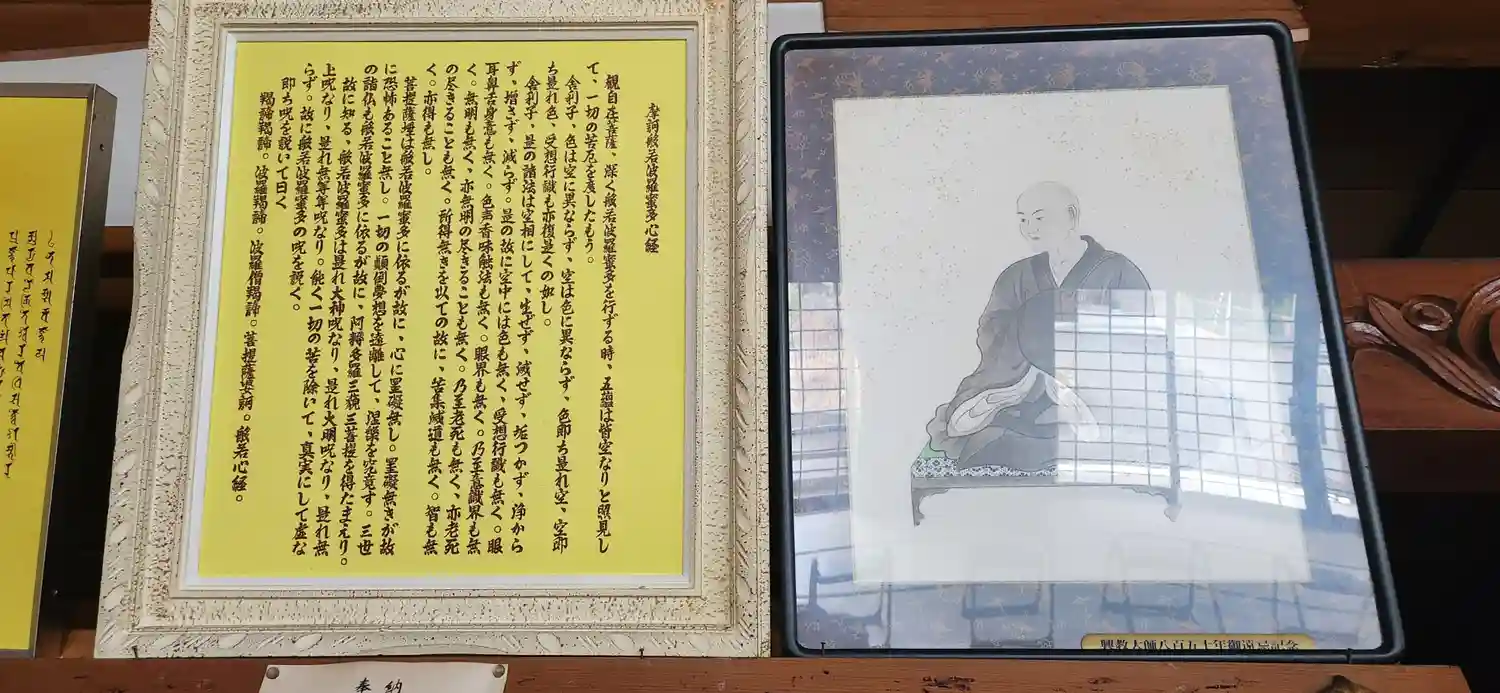 摩訶般若波羅蜜多心経
観自在菩薩、深く般若波羅蜜多を行ずる時、五蘊は皆空なりと照見し
て、一切の苦厄を度したもう。
舎利子、色は空に異ならず、空は色に異ならず、色即ち是れ空、空即
ち是れ色、受想行識も亦復是くの如し。
舎利子、是の諸法は空相にして、生ぜず、滅せず、垢つかず、浄から
ず、増さず、減らず。是の故に空中には色も無く、受想行識も無く。眼
耳鼻舌身意も無く。色声香味触法も無く。眼界も無く。乃至意識界も無
く。無明も無く、亦無明の尽きることも無く。乃至老死も無く、亦老死
の尽きることも無く。所得無きを以ての故に、苦集滅道も無く。智も無
く。亦得も無し。
菩提薩埵は般若波羅蜜多に依るが故に、心に罣礙無し。罣礙無きが故
に恐怖あること無し。一切の顛倒夢想を遠離して、涅槃を究竟す。三世
の諸仏も般若波羅蜜多に依るが故に、阿耨多羅三藐三菩提を得たまえり。
故に知る、般若波羅蜜多は是れ大神呪なり、是れ大明呪なり、是れ無
上呪なり、是れ無等等呪なり。能く一切の苦を除いて、真実にして虚な
らず。故に般若波羅蜜多の呪を説く。
即ち呪を説いて曰く
羯諦羯諦。波羅羯諦。波羅僧羯諦。菩提薩婆訶。般若心経。
興教大師八百五十年御遠忌記念
奉納